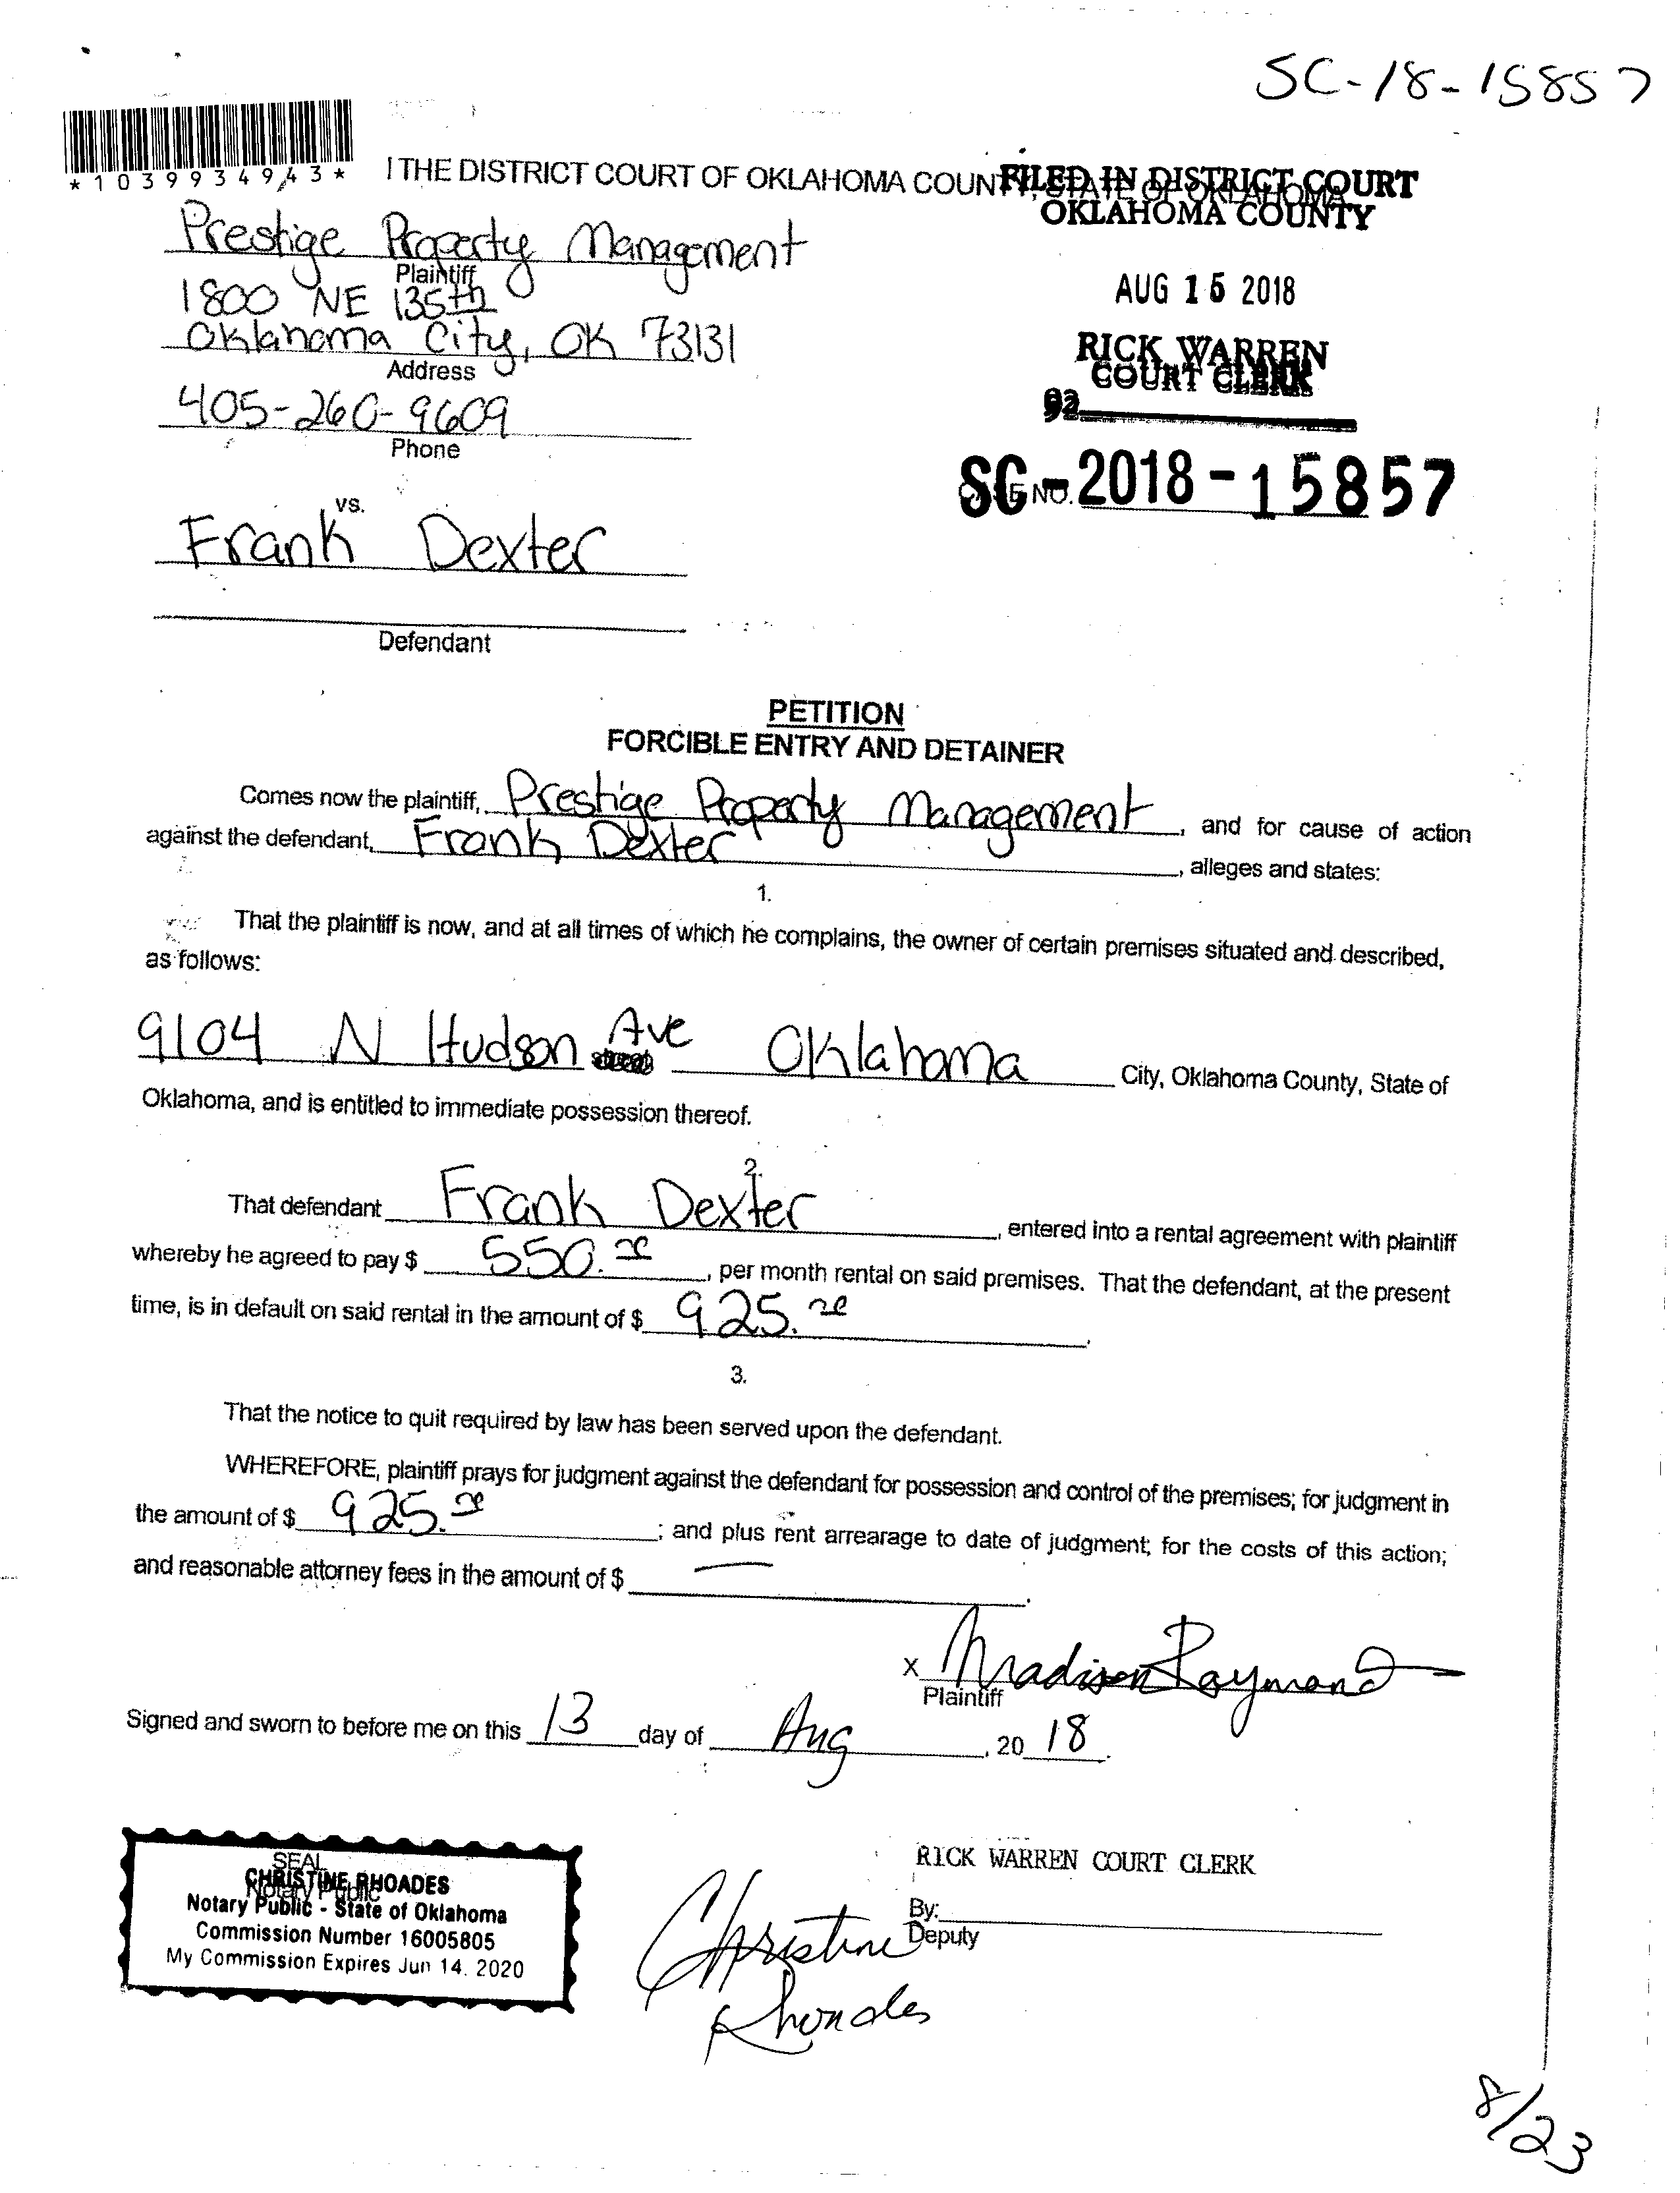 SC-18-15857
*1039934943*
I THE DISTRICT COURT OF OKLAHOMA COUNTY, STATE OF OKLAHOMA
FILED IN DISTRICT COURT
OKLAHOMA COUNTY
Prestige Property Management
Plaintiff
1800 NE 135th
AUG 15 2018
Oklahoma City, OK 73131
Address
RICK WARREN
COURT CLERK
405-260-9609
Phone
92
SC-2018-15857
CASE NO.
vs.
Frank Dexter
Defendant
PETITION
FORCIBLE ENTRY AND DETAINER
Comes now the plaintiff, Prestige Property Management, and for cause of action
against the defendant, Frank Dexter, alleges and states:
1.
That the plaintiff is now, and at all times of which he complains, the owner of certain premises situated and described,
as follows:
9104 N Hudson Ave Oklahoma City, Oklahoma County, State of
Oklahoma, and is entitled to immediate possession thereof.
2.
That defendant Frank Dexter, entered into a rental agreement with plaintiff
whereby he agreed to pay $ 550. , per month rental on said premises. That the defendant, at the present
time, is in default on said rental in the amount of $ 925. .
3.
That the notice to quit required by law has been served upon the defendant.
WHEREFORE, plaintiff prays for judgment against the defendant for possession and control of the premises; for judgment in
the amount of $ 925. ; and plus rent arrearage to date of judgment; for the costs of this action;
and reasonable attorney fees in the amount of $ — .
X Madison Raymond
Plaintiff
Signed and sworn to before me on this 13 day of Aug, 20 18.
SEAL
CHRISTINE RHOADES
Notary Public
Notary Public - State of Oklahoma
Commission Number 16005805
My Commission Expires Jun 14, 2020
RICK WARREN COURT CLERK
By:
Deputy
Christine
Rhoades
8/23